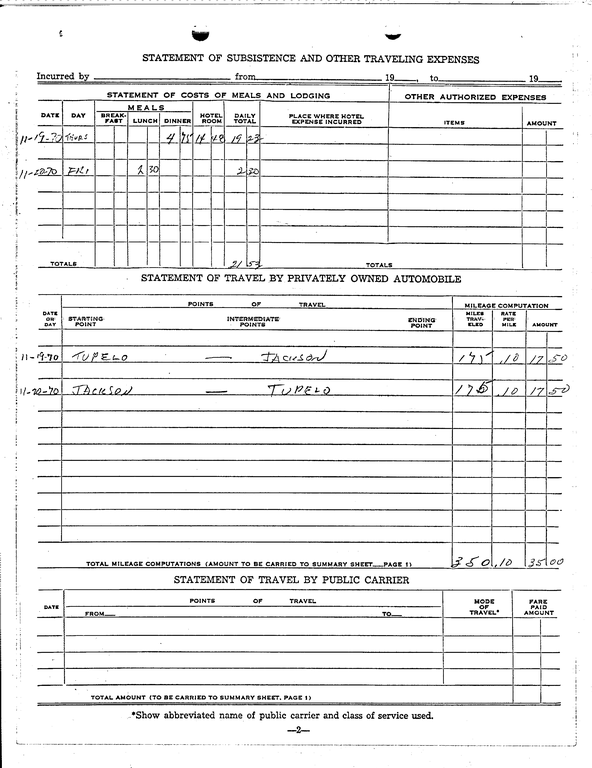 STATEMENT OF SUBSISTENCE AND OTHER TRAVELING EXPENSES
Incurred by from 19 , to 19
STATEMENT OF COSTS OF MEALS AND LODGING OTHER AUTHORIZED EXPENSES
DATE DAY MEALS BREAK-FAST LUNCH DINNER HOTEL ROOM DAILY TOTAL PLACE WHERE HOTEL EXPENSE INCURRED ITEMS AMOUNT
11-19-70 THURS 4 75 14 48 19 23
11-20-70 FRI 2 30 2 30
TOTALS 21 53 TOTALS
STATEMENT OF TRAVEL BY PRIVATELY OWNED AUTOMOBILE
POINTS OF TRAVEL MILEAGE COMPUTATION
DATE OR DAY STARTING POINT INTERMEDIATE POINTS ENDING POINT MILES TRAV-ELED RATE PER MILE AMOUNT
11-19-70 TUPELO — JACKSON 175 .10 17.50
11-20-70 JACKSON — TUPELO 175 .10 17 50
TOTAL MILEAGE COMPUTATIONS (AMOUNT TO BE CARRIED TO SUMMARY SHEET PAGE 1) 350 .10 35 00
STATEMENT OF TRAVEL BY PUBLIC CARRIER
DATE POINTS OF TRAVEL MODE OF TRAVEL* FARE PAID AMOUNT
FROM TO
TOTAL AMOUNT (TO BE CARRIED TO SUMMARY SHEET, PAGE 1)
*Show abbreviated name of public carrier and class of service used.
—2—